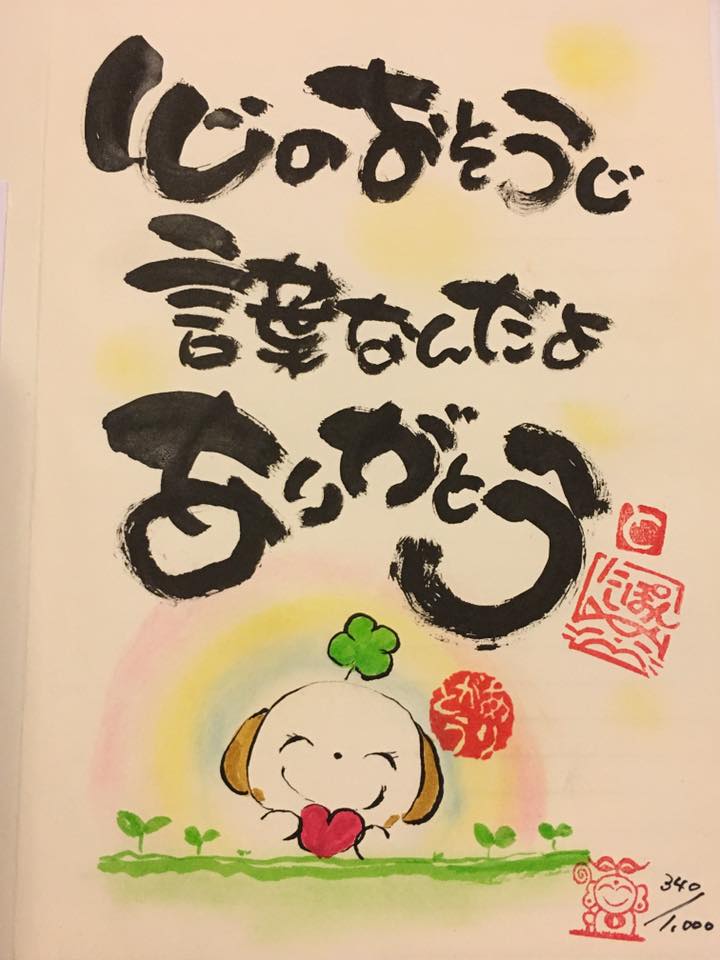 心のおそうじ
言葉なんだよ
ありがとう
ありがとう
340/1,000